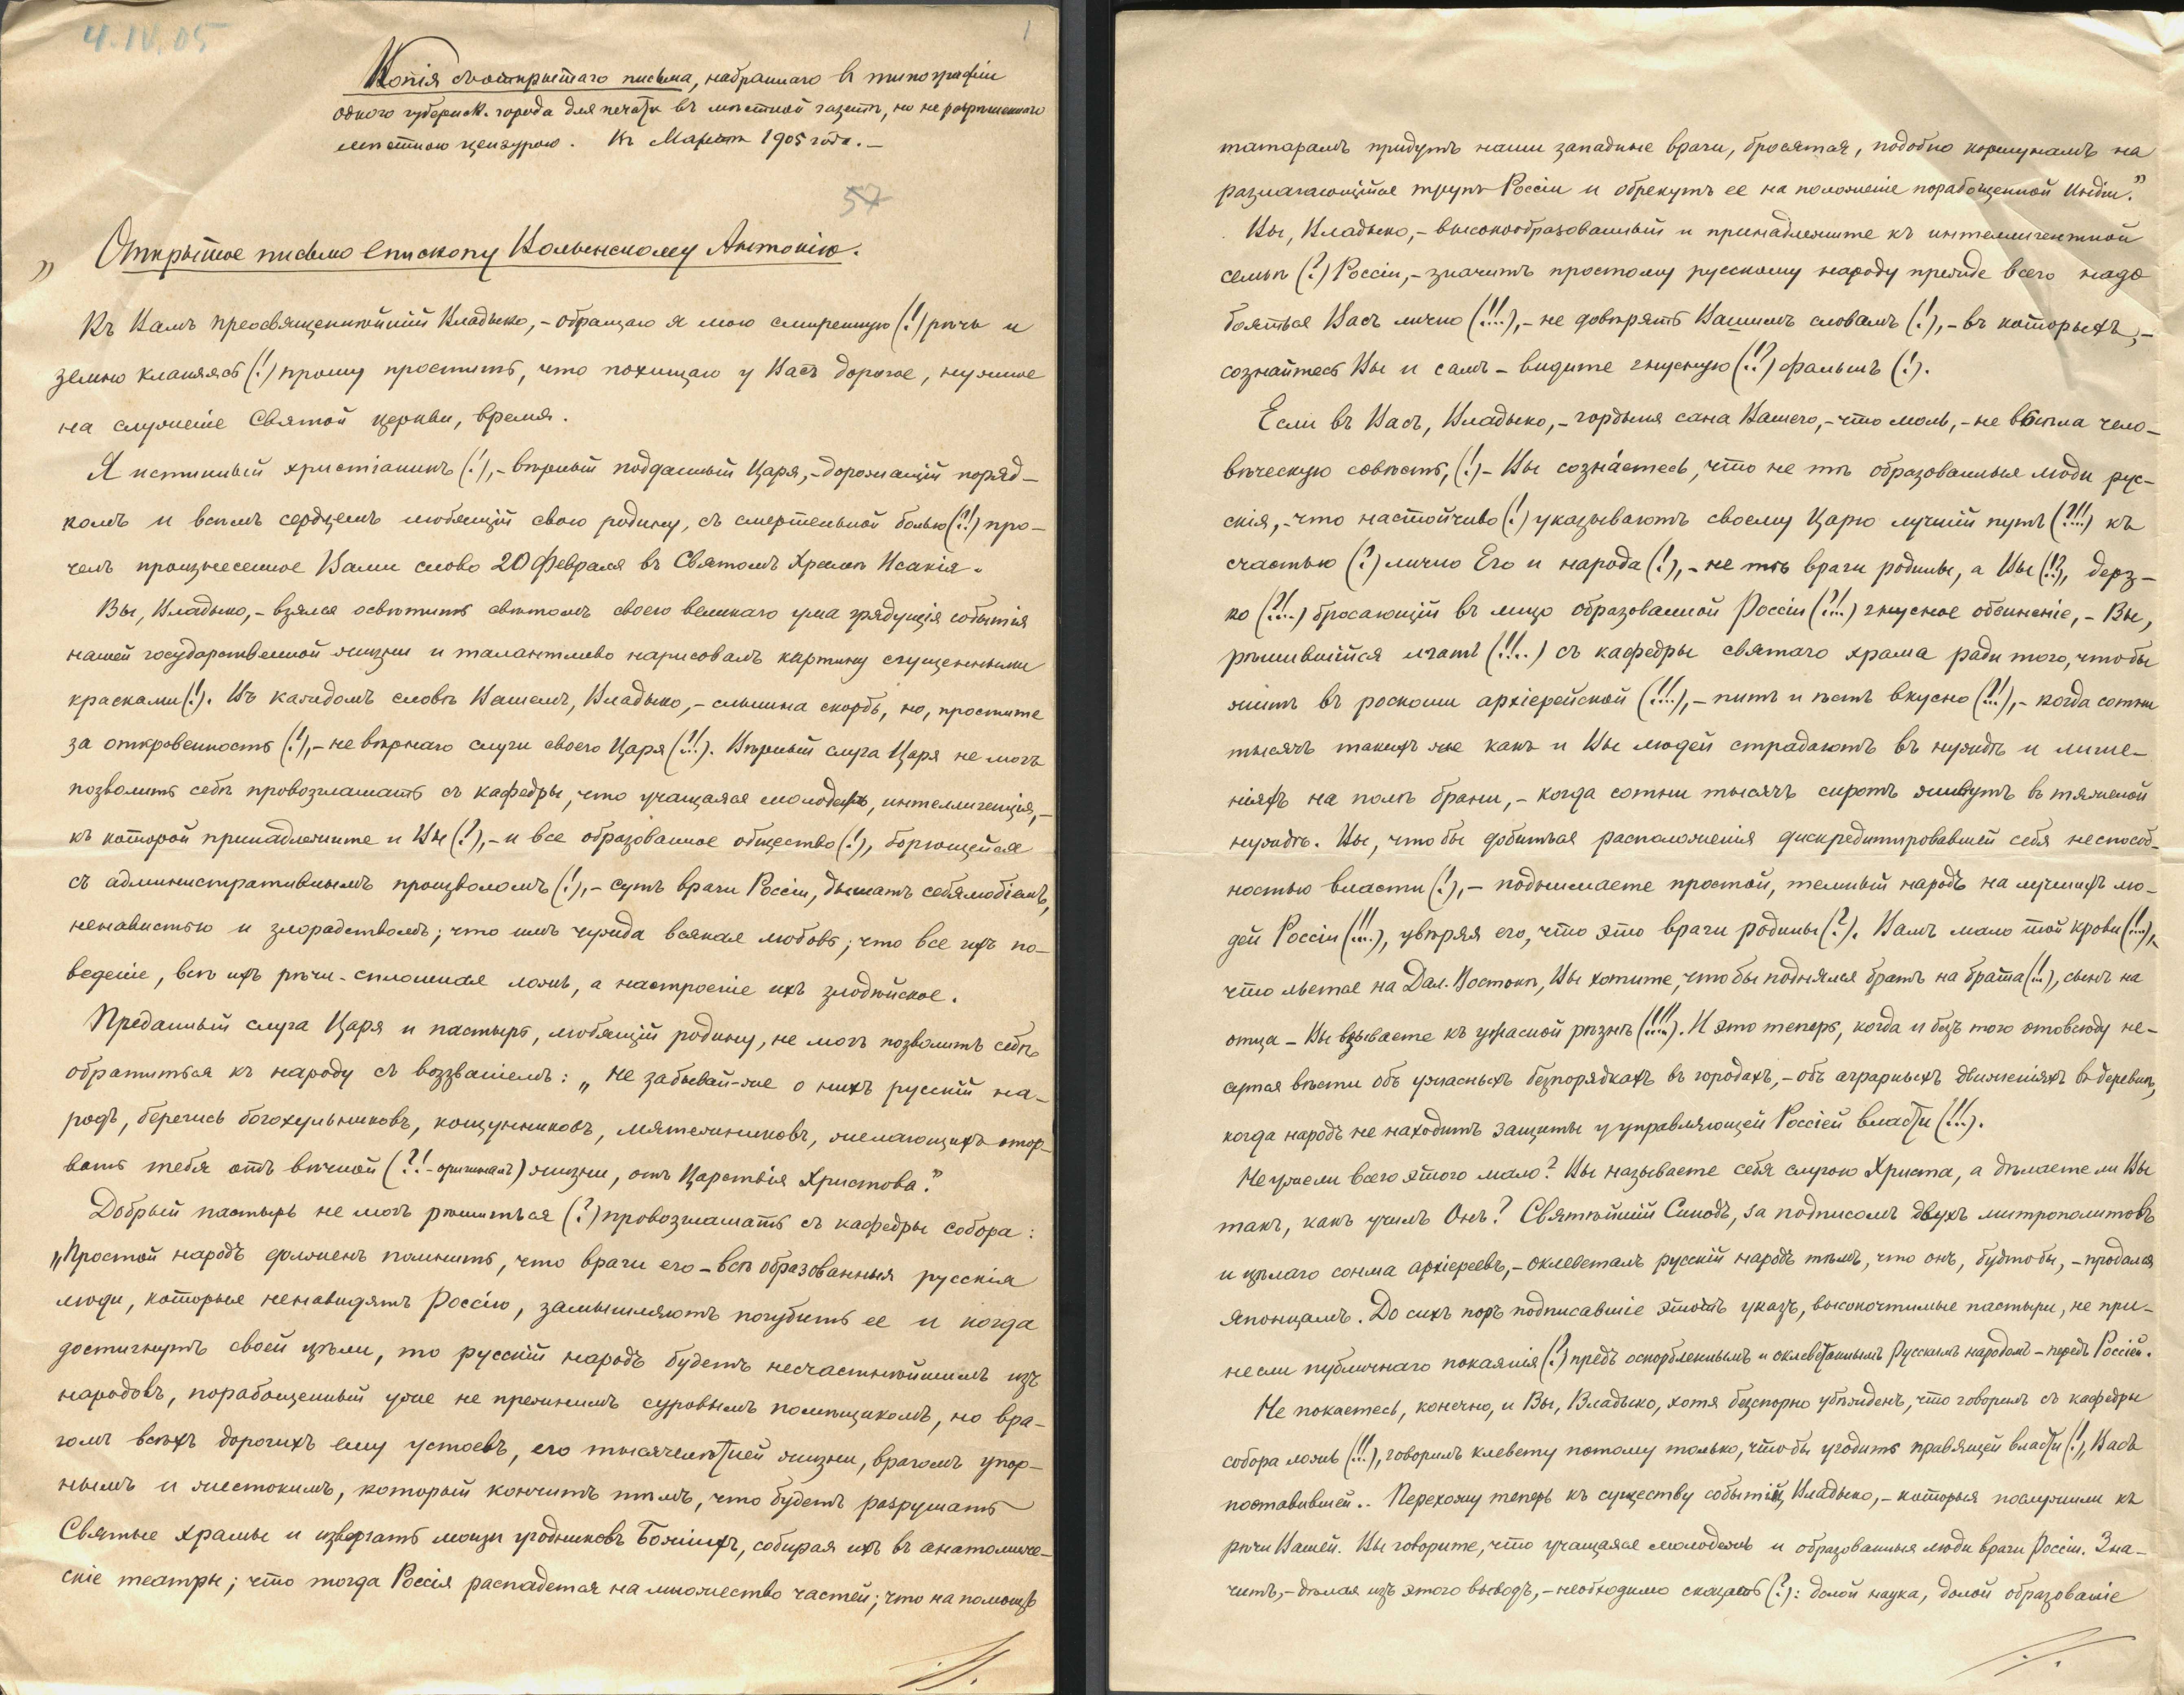 4.IV.05
1
Копія съ открытаго письма, набраннаго в типографіи
одного губернск. города для печати въ местной газетѣ, но не разрѣшеннаго
мѣстною цензурою. Въ Мартѣ 1905 года.–
57
„ Открытое письмо епископу Волынскому Антонію.
Къ Вамъ преосвященнѣйшій Владыко,- обращаю я мою смиренную (!) рѣчь и
земно кланяясь (!) прошу простить, что похищаю у Васъ дорогое, нужное
на служеніе Святой церкви, время.
Я истинный христіанинъ (!),- вѣрный подданный Царя,- дорожащій поряд-
комъ и всѣмъ сердцемъ любящій свою родину, съ смертельной болью (?!) про-
челъ произнесенное Вами слово 20 февраля въ Святомъ Храмѣ Исакія.
Вы, Владыко,- взялся освѣтить свѣтомъ своего великаго ума грядущія событія
нашей государственной жизни и талантливо нарисовалъ картину сгущенными
красками (!). Въ каждомъ словѣ Вашемъ, Владыко,- слышна скорбь, но, простите
за откровенность (!),- не вѣрнаго слуги своего Царя (!!). Вѣрный слуга Царя не могъ
позволить себѣ провозглашать съ кафедры, что учащаяся молодежь, интеллигенція,-
къ которой принадлежите и Вы (?),- и все образованное общество (!), борющейся
съ административнымъ произволомъ (!),- суть враги Россіи, дышатъ себялюбіемъ,
ненавистью и злорадствомъ; что имъ чужда всякая любовь; что все ихъ по-
веденіе, всѣ ихъ рѣчи - сплошная ложь, а настроеніе ихъ злодѣйское.
Преданный слуга Царя и пастырь, любящій родину, не могъ позволить себѣ
обратиться къ народу съ воззваніемъ: „не забывай-же о нихъ русскій на-
родъ, берегись богохульниковъ, кощунниковъ, мятежниковъ, желающихъ отор-
вать тебя отъ вѣчной (?! - оригиналъ) жизни, отъ Царствія Христова."
Добрый пастырь не могъ рѣшиться (?) провозглашать съ кафедры собора:
„Простой народъ долженъ помнить, что враги его - всѣ образованныя русскія
люди, которые ненавидятъ Россію, замышляютъ погубить ее и когда
достигнутъ своей цѣли, то русскій народъ будетъ несчастнѣйшимъ изъ
народовъ, порабощенный уже не прежнимъ суровымъ помѣщикомъ, но вра-
гомъ всѣхъ дорогихъ ему устоевъ, его тысячелѣтней жизни, врагомъ упор-
нымъ и жестокимъ, который кончитъ тѣмъ, что будетъ разрушать
Святые храмы и извергать мощи угодниковъ Божіихъ, собирая ихъ въ анатомиче-
скіе театры; что тогда Россія распадется на множество частей; что на помощь
татарамъ придутъ наши западные враги, бросятся, подобно коршунамъ на
разлагающійся трупъ Россіи и обрекутъ ее на положеніе порабощенной Индіи."
Вы, Владыко,- высокообразованный и принадлежите къ интеллигентной
семьѣ (?) Россіи,- значитъ простому русскому народу прежде всего надо
бояться Васъ лично (!!),- не довѣрять Вашимъ словамъ (!),- въ которыхъ,-
сознайтесь Вы и самъ - видите гнусную (!?) фальшь (!).
Если въ Васъ, Владыко,- гордыня сана Вашего,- что моль,- не въѣла чело-
вѣческую совѣсть, (!)- Вы сознаетесь, что не тѣ образованныя люди рус-
скія,- что настойчиво (!) указываютъ своему Царю лучшій путь (?!!) къ
счастью (?) лично Его и народа (!),- не тѣ враги родины, а Вы (!?), дерз-
ко (?!) бросающій въ лицо образованной Россіи (?!) гнусное обвиненіе,- Вы,
рѣшившійся лгать (!!) съ кафедры святаго храма ради того, чтобы
жить въ роскоши архіерейской (!!),- пить и ѣсть вкусно (?!),- когда сотни
тысячъ такихъ же какъ и Вы людей страдаютъ въ нуждѣ и лише-
ніяхъ на полѣ брани,- когда сотни тысячъ сиротъ живутъ въ тяжелой
нуждѣ. Вы, чтобы добиться расположенія дискредитировавшей себя неспособ-
ностью власти (!),- поднимаете простой, темный народъ на лучшихъ лю-
дей Россіи (!!), увѣряя его, что это враги родины (?). Вамъ мало той крови (!!),
что льется на Дал. Востокѣ, Вы хотите, чтобы поднялся братъ на брата (!), сынъ на
отца - Вы взываете къ ужасной рѣзнѣ (!!!). И это теперь, когда и безъ того отовсюду не-
сутся вѣсти объ ужасныхъ безпорядкахъ въ городахъ,- объ аграрныхъ движеніяхъ въ деревнѣ,
когда народъ не находитъ защиты у управляющей Россіей власти (!!).
Неужели всего этого мало? Вы называете себя слугою Христа, а дѣлаете ли Вы
такъ, какъ училъ Онъ? Святѣйшій Синодъ, за подписомъ двухъ митрополитовъ
и цѣлаго сонма архіереевъ,- оклеветалъ русскій народъ тѣмъ, что онъ, будтобы,- продался
японцамъ. До сихъ поръ подписавшіе этотъ указъ, высокочтимые пастыри, не при-
несли публичнаго покаянія (?) предъ оскорбленнымъ и оклеветаннымъ Русскимъ народомъ - передъ Россіей.
Не покаетесь, конечно, и Вы, Владыко, хотя безспорно убѣжденъ, что говоримъ съ кафедры
собора ложь (!!), говоримъ клевету потому только, чтобы угодить правящей власти (!), Васъ
поставившей.. Перехожу теперь къ существу событій, Владыко,- которыя послужили къ
рѣчи Вашей. Вы говорите, что учащаяся молодежь и образованныя люди враги Россіи. Зна-
читъ,- дѣлая изъ этого выводъ,- необходимо сказать (?): долой наука, долой образованіе